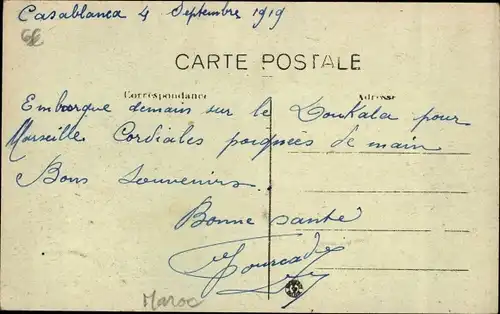 Casablanca 4 Septembre 1919
CARTE POSTALE
Correspondance Adresse
Embarque demain sur le Doukala pour
Marseille Cordiales poignées de main
Bons souvenirs.
Bonne santé
Maroc